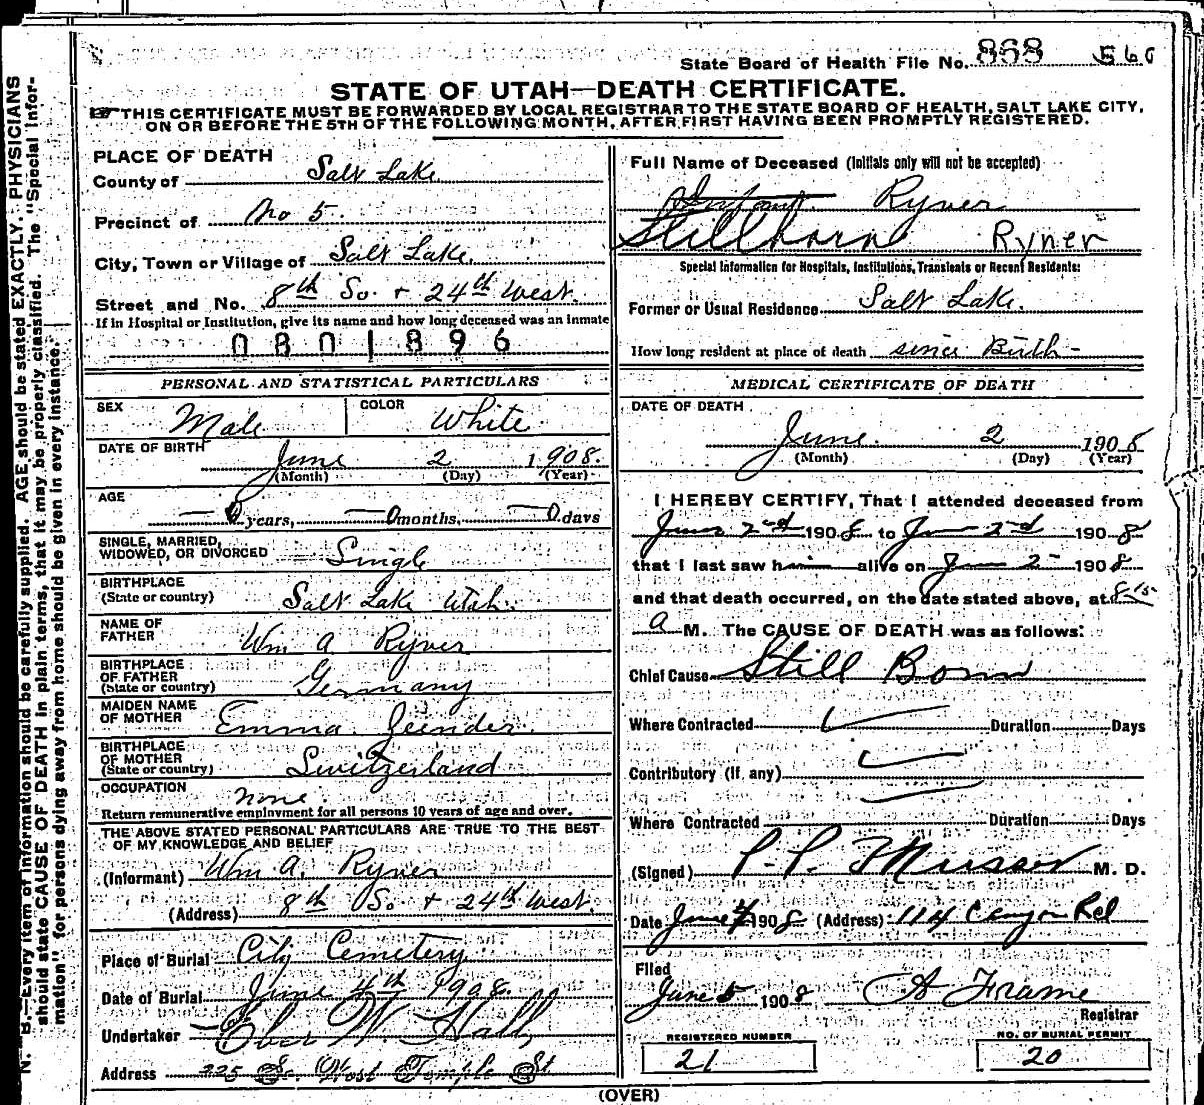 State Board of Health File No. 868 560
STATE OF UTAH—DEATH CERTIFICATE.
THIS CERTIFICATE MUST BE FORWARDED BY LOCAL REGISTRAR TO THE STATE BOARD OF HEALTH, SALT LAKE CITY,
ON OR BEFORE THE 5TH OF THE FOLLOWING MONTH, AFTER FIRST HAVING BEEN PROMPTLY REGISTERED.
PLACE OF DEATH
County of Salt Lake
Precinct of No 5.
City, Town or Village of Salt Lake.
Street and No. 8th So. + 24th West.
If in Hospital or Institution, give its name and how long deceased was an inmate
0801896
PERSONAL AND STATISTICAL PARTICULARS
SEX Male COLOR White
DATE OF BIRTH June 2 1908.
(Month) (Day) (Year)
AGE
— 0 years, — 0 months, — 0 days
SINGLE, MARRIED,
WIDOWED, OR DIVORCED Single
BIRTHPLACE
(State or country) Salt Lake Utah.
NAME OF
FATHER Wm A Ryner
BIRTHPLACE
OF FATHER
(State or country) Germany
MAIDEN NAME
OF MOTHER Emma
BIRTHPLACE
OF MOTHER
(State or country) Switzerland
OCCUPATION none
Return remunerative employment for all persons 10 years of age and over.
THE ABOVE STATED PERSONAL PARTICULARS ARE TRUE TO THE BEST
OF MY KNOWLEDGE AND BELIEF
(Informant) Wm A. Ryner
(Address) 8th So. + 24th West.
Place of Burial City Cemetery
Date of Burial June 4th 1908.
Undertaker Eber W. Hall
Address 225 So. West Temple St
Full Name of Deceased (Initials only will not be accepted)
Infant Ryner
Stillborn Ryner
Special Information for Hospitals, Institutions, Transients or Recent Residents:
Former or Usual Residence Salt Lake.
How long resident at place of death since Birth -
MEDICAL CERTIFICATE OF DEATH
DATE OF DEATH
June 2 1908
(Month) (Day) (Year)
I HEREBY CERTIFY, That I attended deceased from
June 2nd 1908 to June 2nd 1908
that I last saw him alive on June 2 - 1908
and that death occurred, on the date stated above, at 8-15
a M. The CAUSE OF DEATH was as follows:
Chief Cause Still Born
Where Contracted Duration Days
Contributory (if any)
Where Contracted Duration Days
(Signed) P. P. Musser M. D.
Date June 4 1908 (Address) 114 Canyon Rd
Filed
June 5 1908 A Frame
Registrar
REGISTERED NUMBER
21
NO. OF BURIAL PERMIT
20
(OVER)
N. B.—Every item of information should be carefully supplied. AGE should be stated EXACTLY. PHYSICIANS
should state CAUSE OF DEATH in plain terms, that it may be properly classified. The "Special Infor-
mation" for persons dying away from home should be given in every instance.